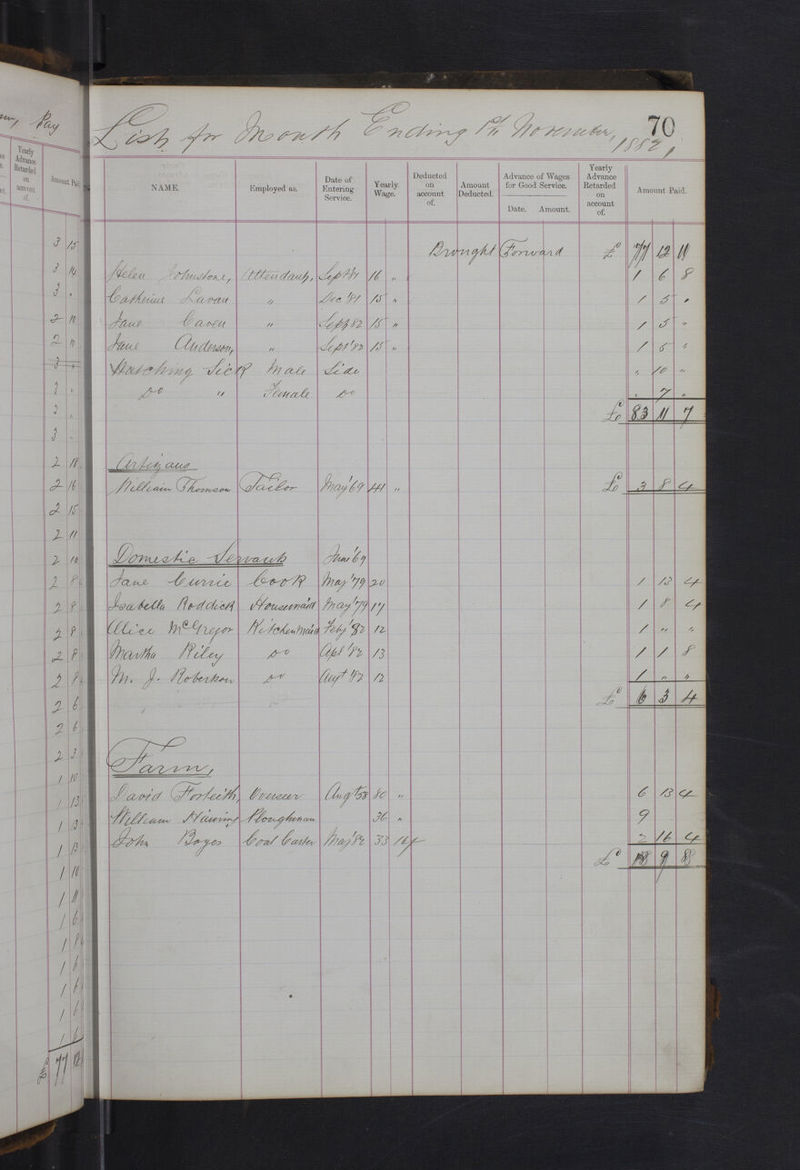 Pay
Yearly Advance Retarded on account of.
Amount Paid
3 15
3 10
3 "
2 11
2 11
3 "
3 "
3 "
3 "
2 18
2 16
2 15
2 11
2 10
2 8
2 8
2 8
2 8
2 8
2 6
2 6
2 3
1 10
1 13
1 13
1 13
1 10
1 11
1 6
1 8
1 6
1 6
1 6
1 6
77 12
70
List for Month Ending 1st November, 1882,
NAME. Employed as. Date of Entering Service. Yearly Wage. Deducted on account of. Amount Deducted. Advance of Wages for Good Service. Date. Amount. Yearly Advance Retarded on account of. Amount Paid.
Brought Forward £ 77 12 11
Helen Johnstone, Attendant, Sept '81 16 " 1 6 8
Catherine Lavan " Dec '81 15 " 1 5 "
Jane Caven " Sept 82 15 " 1 5 "
Jane Anderson, " Sept '82 15 " 1 5 "
Watching Sick Male Side " 10 "
Do " Female Do " 7 "
£ 83 11 7
Artizans
William Thomson Tailor May '69 41 " £ 3 8 4
Domestic Servants June '69
Jane Currie Cook May '79 20 1 13 4
Isabella Roddick Housemaid May '79 17 1 8 4
Alice McGregor Kitchenmaid Feby '82 12 1 " "
Martha Riley Do Apl '82 13 1 1 8
M. J. Robertson Do Augt '82 12 1 " "
£ 6 3 4
Farm,
David Forteith, Overseer Augt 58 80 " 6 13 4
William Ploughman 36 " 9
John Boyes Coal Carter May '82 33 16/ 2 16 4
£ 18 9 8